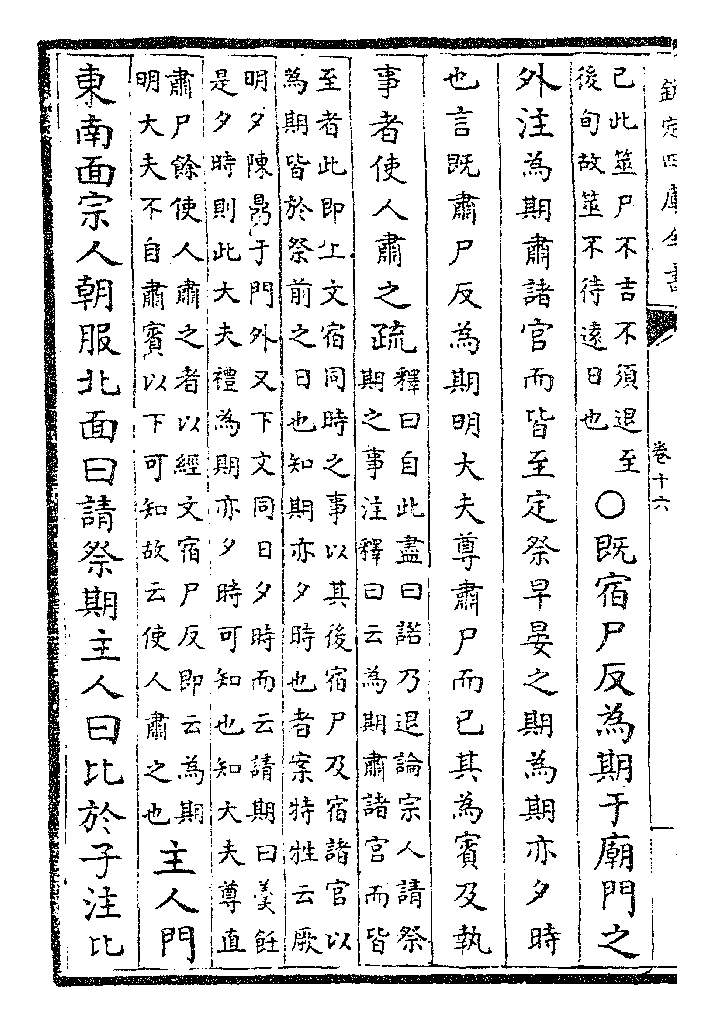 欽定四庫全書
卷十六
已此筮尸不吉不須退至
後旬故筮不待遠日也
○既宿尸反為期于廟門之
外注為期肅諸官而皆至定祭早晏之期為期亦夕時
也言既肅尸反為期明大夫尊肅尸而已其為賓及執
事者使人肅之疏
釋曰自此盡曰諾乃退論宗人請祭
期之事注釋曰云為期肅諸官而皆
至者此即上文宿同時之事以其後宿尸及宿諸官以
為期皆於祭前之日也知期亦夕時也者案特牲云厥
明夕陳鼎于門外又下文同日夕時而云請期曰羹飪
是夕時則此大夫禮為期亦夕時可知也知大夫尊直
肅尸餘使人肅之者以經文宿尸反即云為期
明大夫不自肅賓以下可知故云使人肅之也
主人門
東南面宗人朝服北面曰請祭期主人曰比於子注比